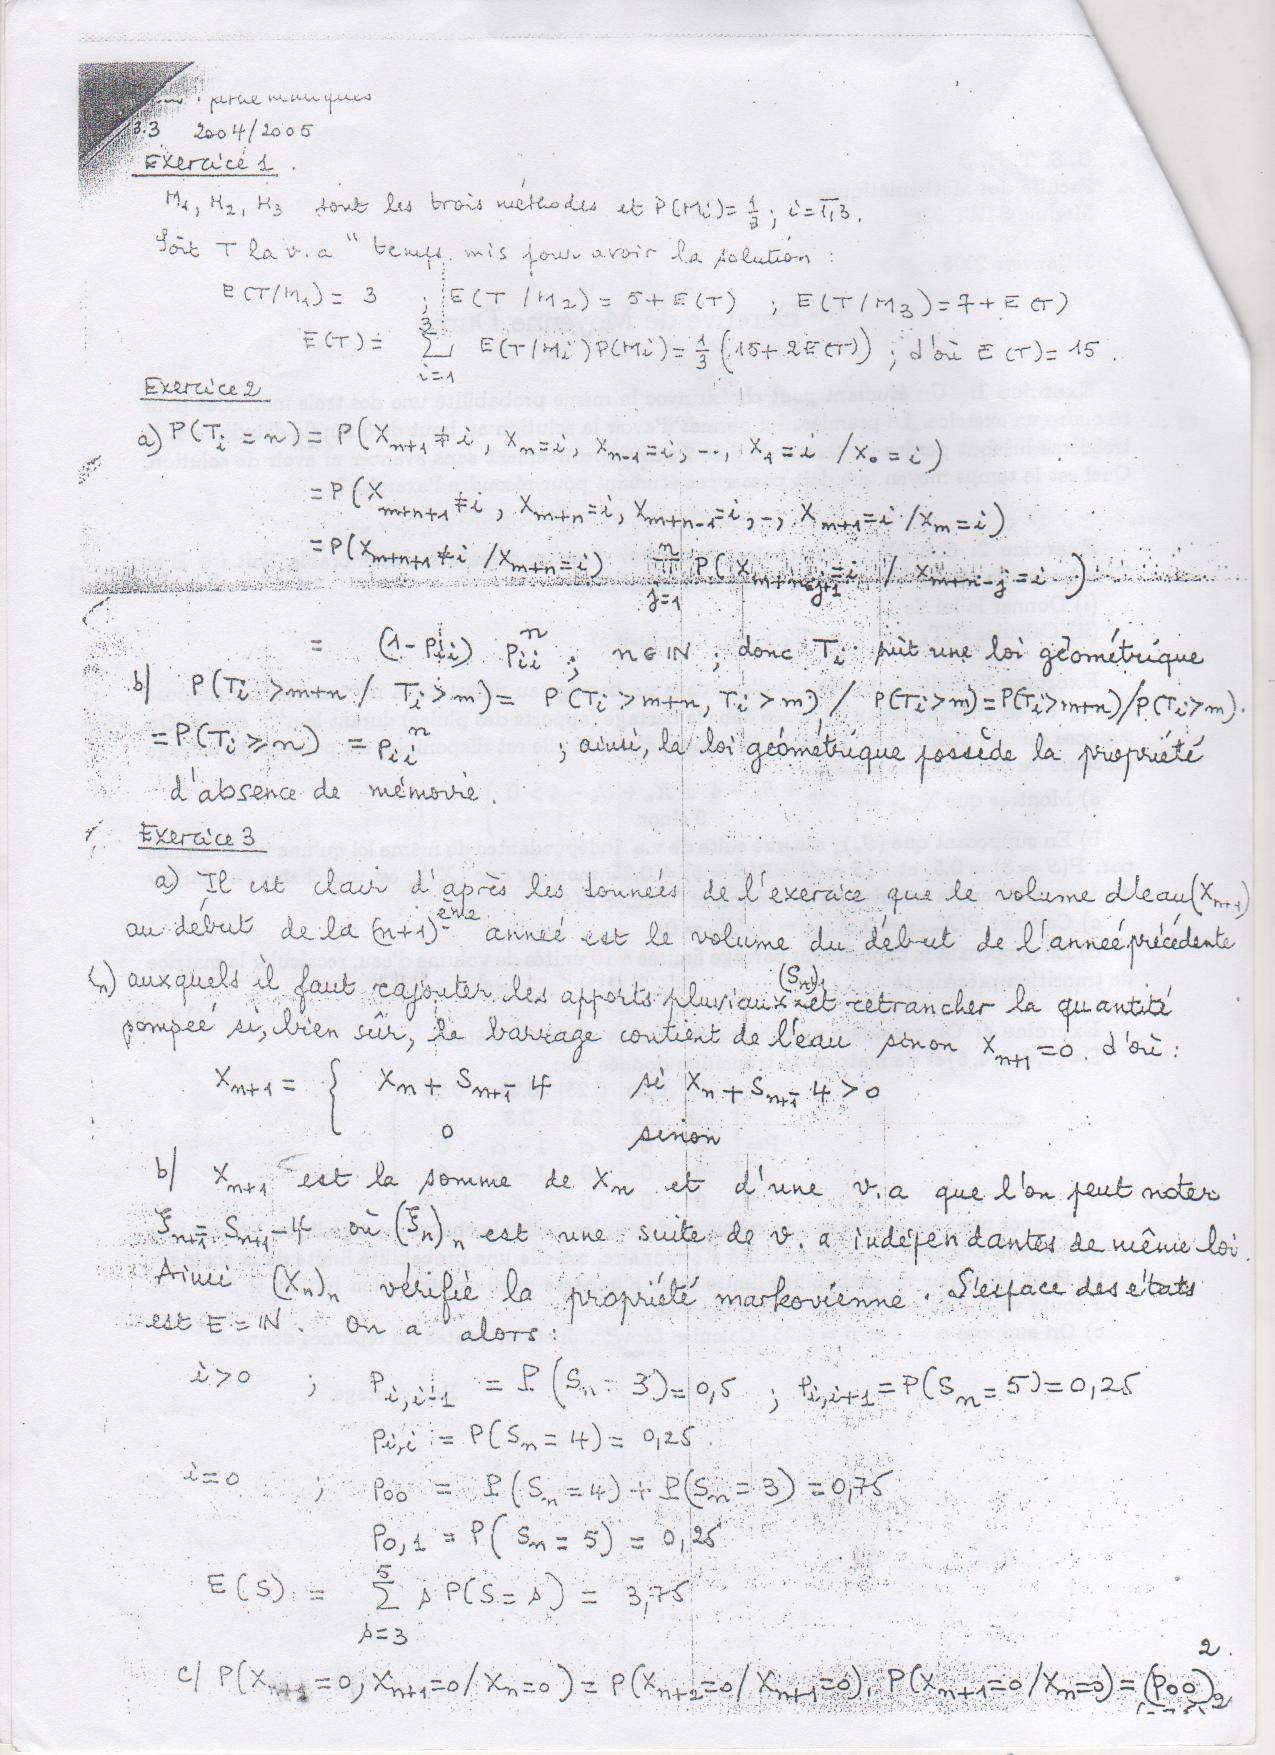 3.3 2004/2005
Exercice 1.
M1, M2, M3 sont les trois méthodes et P(Mi)=1/3; i=1,3.
Soit T la v.a "temps mis pour avoir la solution:
E(T/M1) = 3 ; E(T/M2) = 5+E(T) ; E(T/M3)=7+E(T)
E(T)= Σ_{i=1}^{3} E(T/Mi)P(Mi)=1/3(15+2E(T)) ; d'où E(T)=15.
Exercice 2
a) P(Ti=n)= P(X_{n+1}≠i, X_n=i, X_{n-1}=i,--, X_1=i /X_0=i)
=P(X_{m+n+1}≠i, X_{m+n}=i, X_{m+n-1}=i,-, X_{m+1}=i/X_m=i)
=P(X_{m+n+1}≠i /X_{m+n}=i) Π_{j=1}^{n} P(X_{m+n-j+1}=i / X_{m+n-j}=i)
= (1-P_{ii}) P_{ii}^n ; n∈IN ; donc Ti suit une loi géométrique
b/ P(Ti>m+n / Ti>m)= P(Ti>m+n, Ti>m) / P(Ti>m)=P(Ti>m+n)/P(Ti>m).
=P(Ti≥n) =P_{ii}^n ; ainsi, la loi géométrique possède la propriété
d'absence de mémoire.
Exercice 3
a) Il est clair d'après les données de l'exercice que le volume d'eau (X_{n+1})
au début de la (n+1)ème année est le volume du début de l'année précédente
auxquels il faut rajouter les apports pluviaux (S_n) et retrancher la quantité
pompée si, bien sûr, le barrage contient de l'eau sinon X_{n+1}=0. d'où:
X_{n+1} = { X_n + S_{n+1} - 4 si X_n + S_{n+1} - 4 > 0
0 sinon
b/ X_{n+1} est la somme de X_n et d'une v.a que l'on peut noter
ξ_{n+1}= S_{n+1}-4 où (ξ_n)_n est une suite de v.a indépendantes de même loi.
Ainsi (X_n)_n vérifie la propriété markovienne. L'espace des états
est E=IN. On a alors:
i>0 ; P_{i,i-1} = P(S_n=3)=0,5 ; P_{i,i+1}=P(S_n=5)=0,25
P_{i,i} = P(S_n=4)= 0,25.
i=0 ; P_{00} = P(S_n=4)+P(S_n=3)=0,75
P_{0,1} = P(S_n=5) = 0,25
E(S) = Σ_{s=3}^{5} s P(S=s) = 3,75
c/ P(X_{n+2}=0, X_{n+1}=0/X_n=0)= P(X_{n+2}=0/X_{n+1}=0). P(X_{n+1}=0/X_n=0)=(P_{00})^2